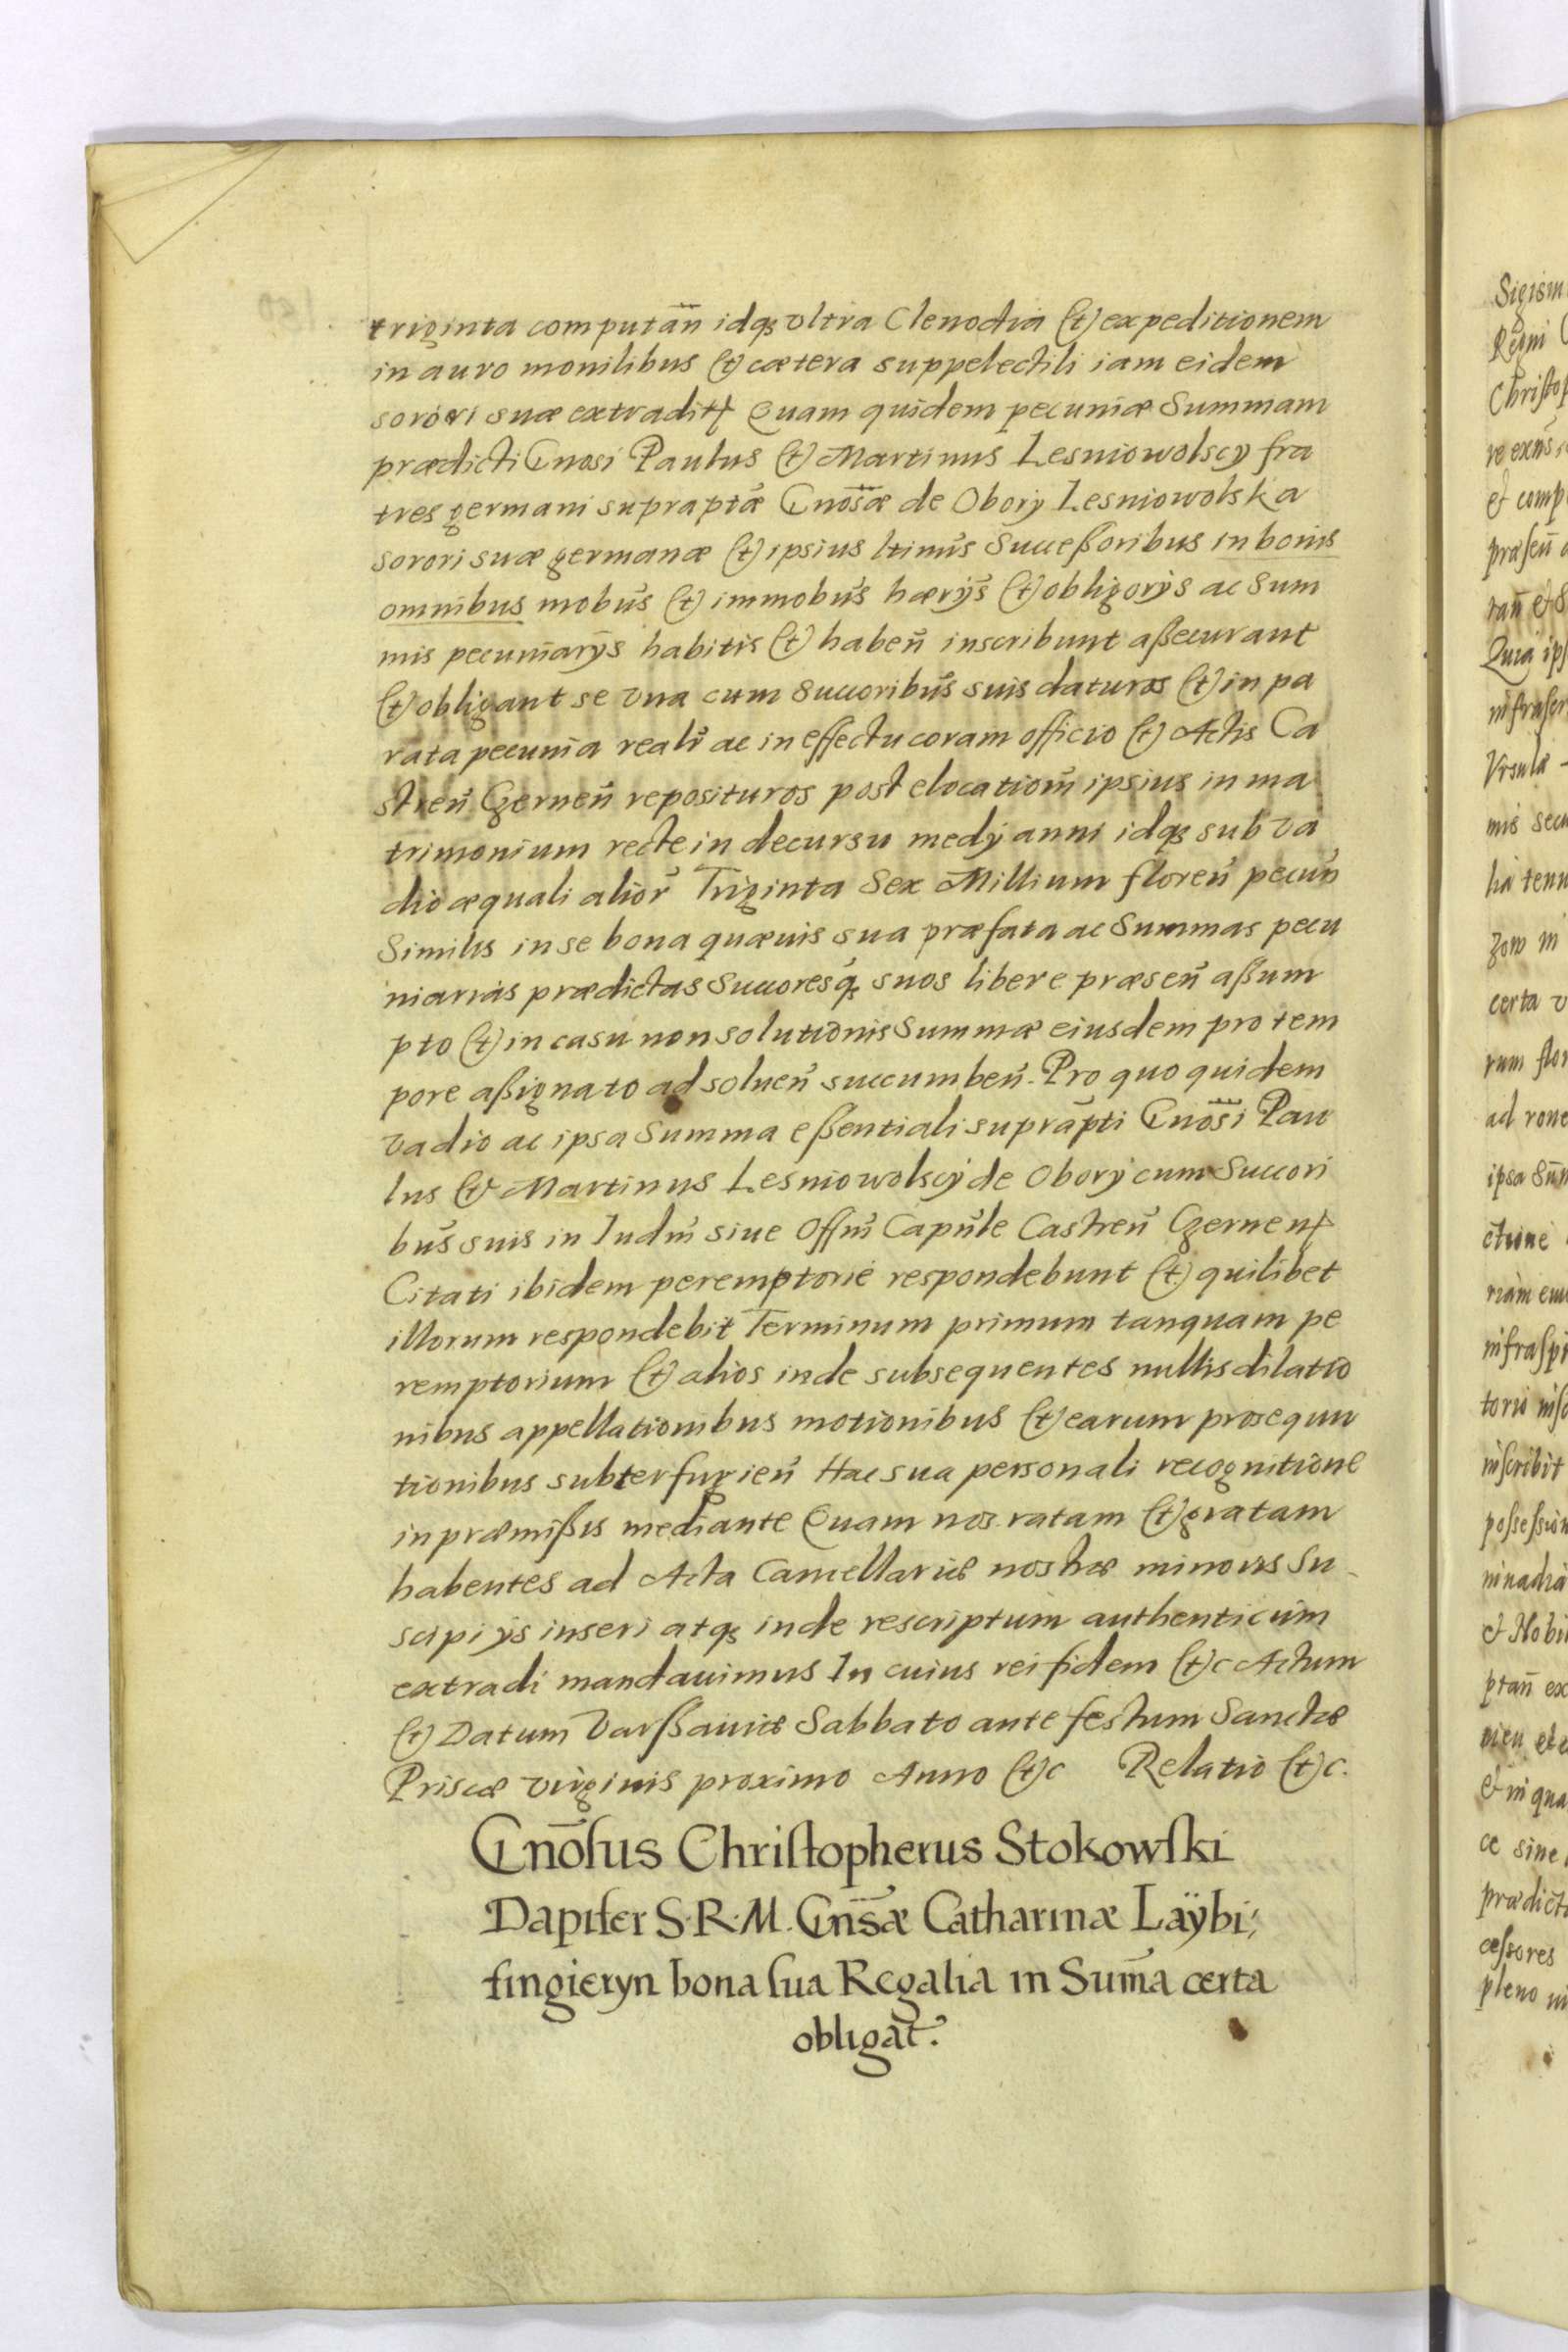 triginta computan̄ idqꝫ vltra Clenodia (et) expeditionem
in auro monilibus (et) cætera suppelectili iam eidem
sorori suæ extradit Quam quidem pecuniæ Summam
prædicti Gnosi Paulus (et) Martinus Lesniowolscy fra
tres germani supraptæ Gnosæ de Obory Lesniowolska
sorori suæ germanæ (et) ipsius ltimis Successoribus in bonis
omnibus mobus (et) immobus hærijs (et) obligorijs ac Sum
mis pecuniarijs habitis (et) haben̄ inscribunt assecurant
(et) obligant se vna cum Succoribus suis daturos (et) in pa
rata pecunia reali ac in effectu coram officio (et) Actis Ca
stren̄ Czernen̄ reposituros post elocationem ipsius in ma
trimonium recte in decursu medij anni idqꝫ sub va
dio æquali alior̄ Triginta Sex Millium floren̄ pecun̄
Similis in se bona quævis sua præfata ac Summas pecu
niarias prædictas Succoresqꝫ suos libere præsen̄ assum
pto (et) in casu non solutionis Summæ eiusdem pro tem
pore assignato ad soluen̄ succumben̄. Pro quo quidem
vadio ac ipsa Summa essentiali suprāpti Gnosi Pau
lus (et) Martinus Lesniowolscy de Obory cum Succori
bus suis in Iudm̄ siue Offm̄ Capn̄le Castren̄ Czernen
Citati ibidem peremptorie respondebunt (et) quilibet
illorum respondebit Terminum primum tanquam pe
remptorium (et) alios inde subsequentes nullis dilatio
nibus appellationibus motionibus (et) earum prosequu
tionibus subterfugien̄ Hac sua personali recognitione
in præmissis mediante Quam nos ratam (et) gratam
habentes ad Acta Cancellariæ nostræ minoris Su
scipi ijs inseri atqꝫ inde rescriptum authenticum
extradi mandauimus In cuius rei fidem (et)c Actum
(et) Datum Varssauiæ Sabbato ante festum Sanctæ
Priscæ virginis proximo Anno (et)c Relatio (et)c.
Gnōsus Christopherus Stokowski
Dapifer S. R. M. Gn̄sæ Catharinæ Laÿbi,
fingieryn bona sua Regalia in Sum̄a certa
obligat.